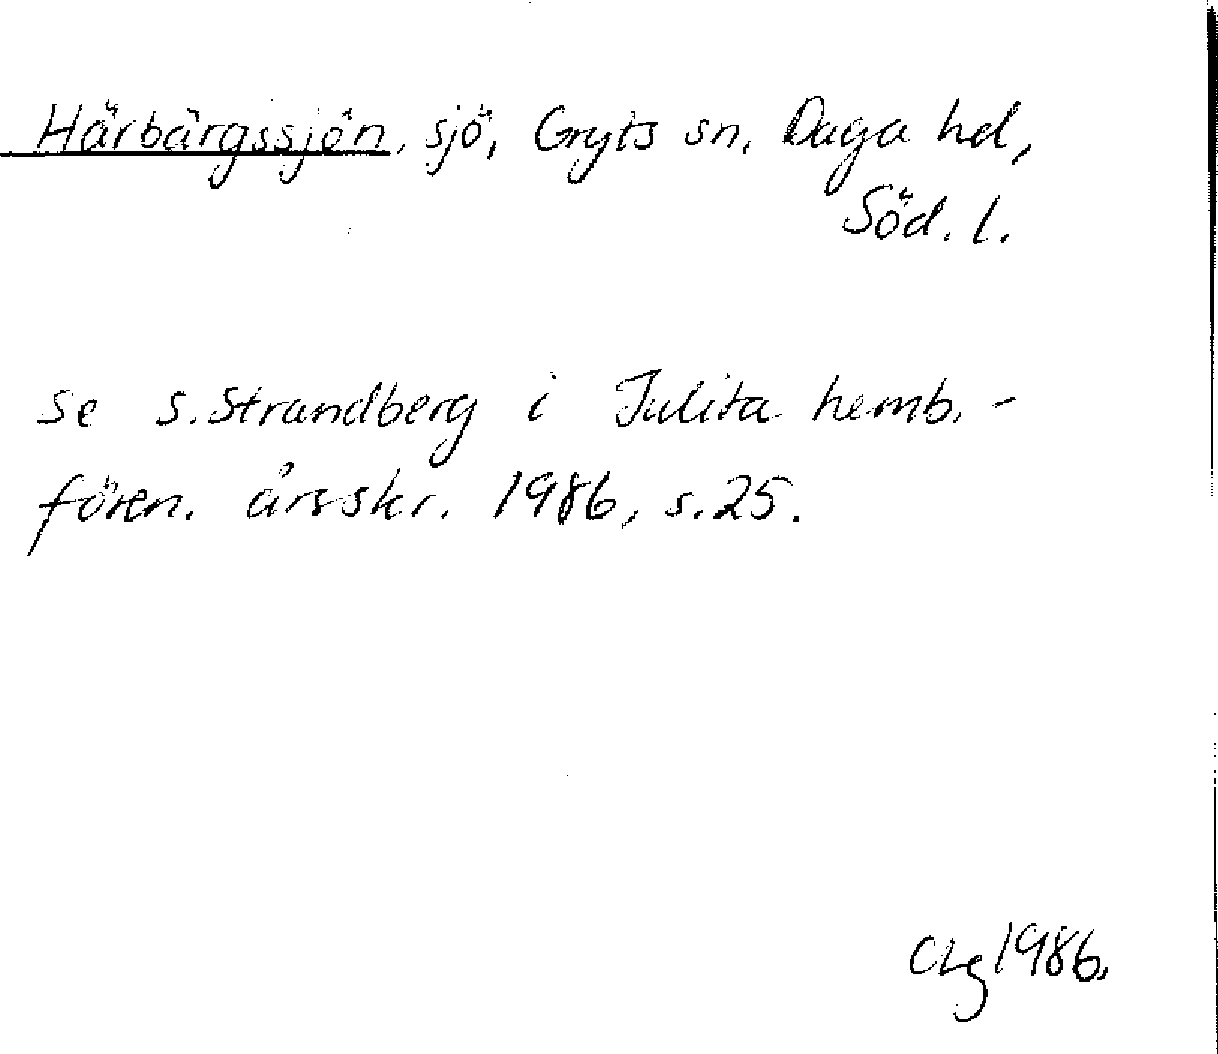 Härbärgssjön, sjö, Gryts sn, Daga hd,
Söd. l.
se S. Strandberg i Julita hemb.-
fören. årsskr. 1986, s. 25.
CLg 1986.